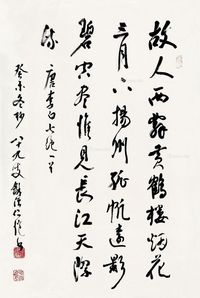 故人西辭黃鶴樓煙花
三月下揚州孤帆遠影
碧空尽惟見長江天際
流
唐李白七絕一首
癸未冬杪八十九叟